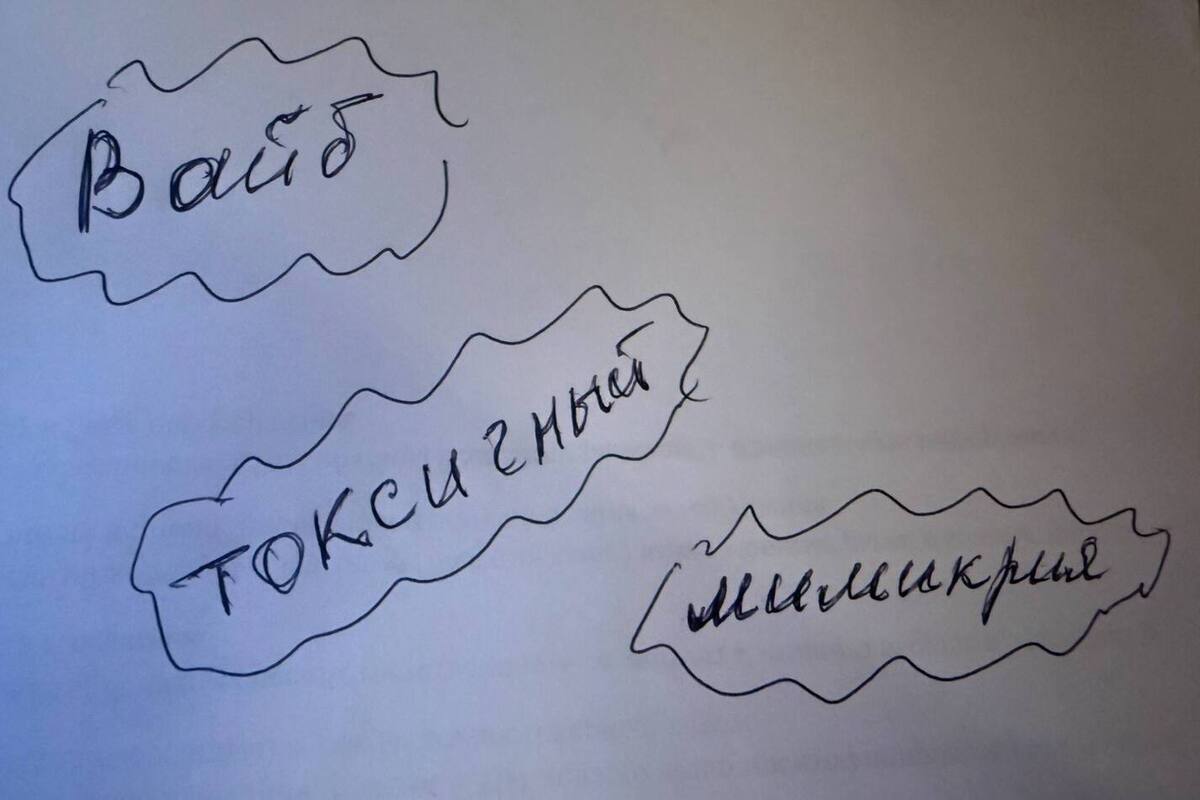 Вайб
токсичный
мимикрия